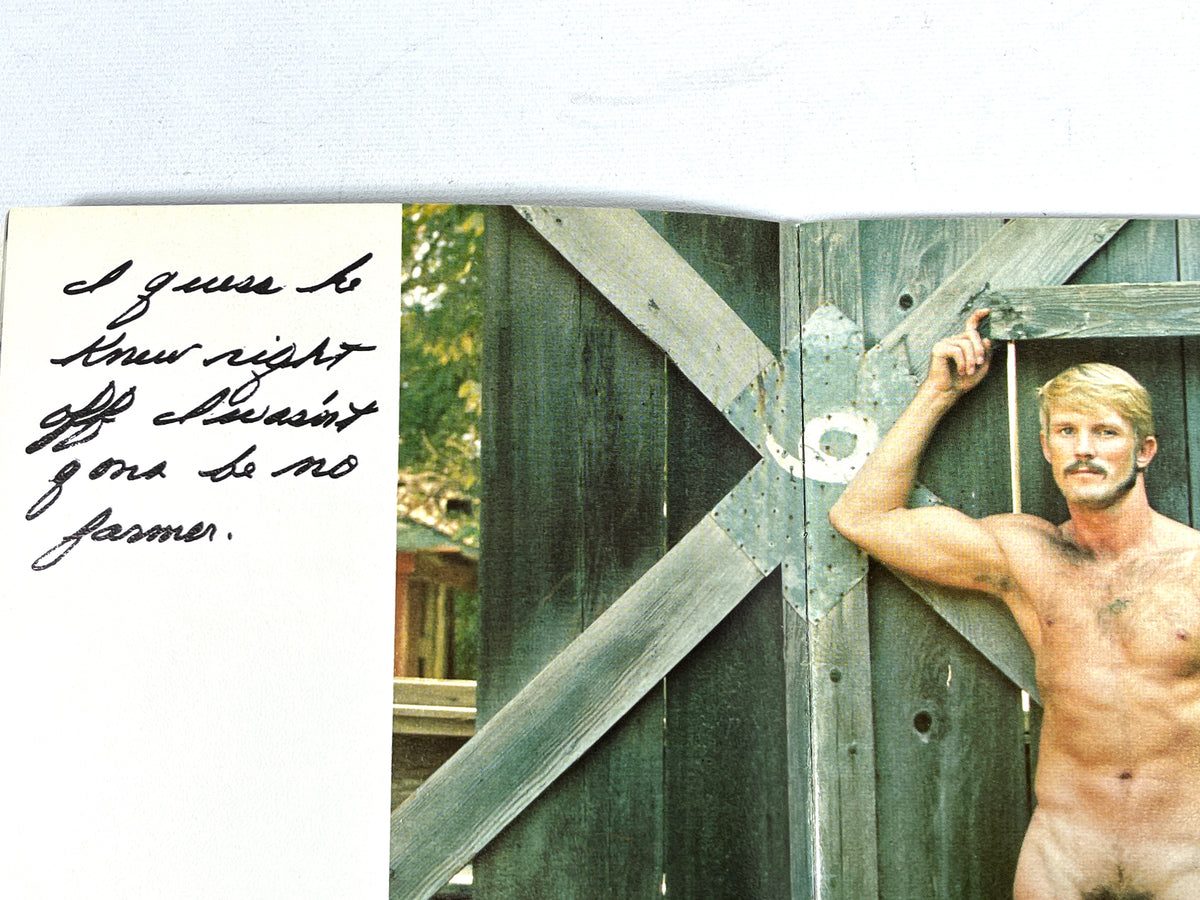 I guess he
knew right
off I wasn't
gona be no
farmer.